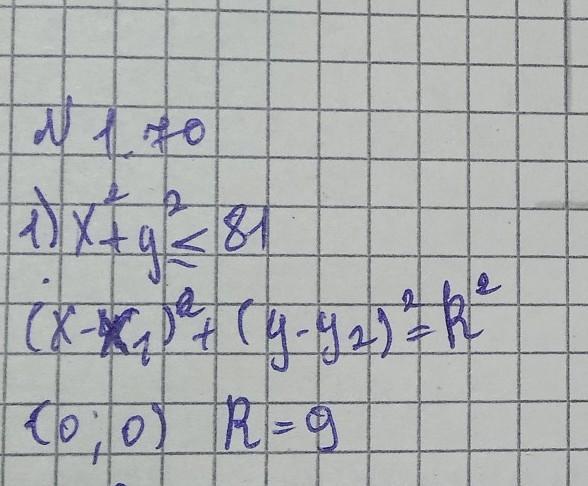 N 1.70
1) x² + y² ≤ 81
(x - x₁)² + (y - y₂)² = R²
(0; 0) R = 9